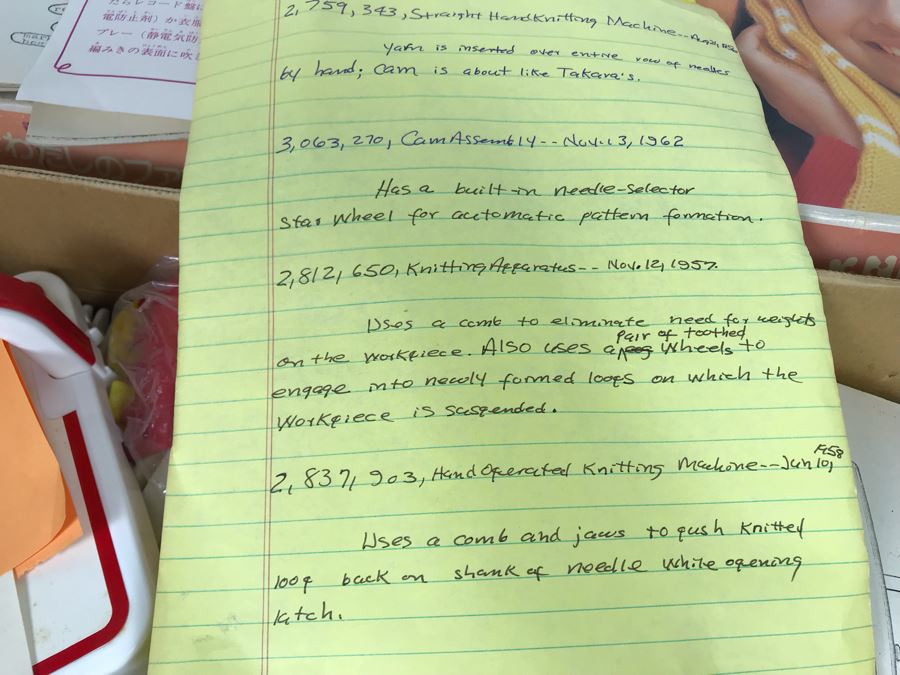 だらレコード盤に
電防止剤)か衣服
プレー(静電気防
編みきの表面に吹
2,759,343, Straight Hand Knitting Machine--Aug
yarn is inserted over entire row of needles
by hand; cam is about like Takara's.
3,063,270, Cam Assembly--Nov. 13, 1962
Has a built-in needle-selector
star wheel for automatic pattern formation.
2,812,650, Knitting Apparatus--Nov. 12, 1957.
Uses a comb to eliminate need for weights
on the workpiece. Also uses a pair of toothed wheels to
engage into newly formed loops on which the
workpiece is suspended.
2,837,903, Hand Operated Knitting Machine--Jun 10, 1958
Uses a comb and jaws to push knitted
loop back on shank of needle while opening
latch.